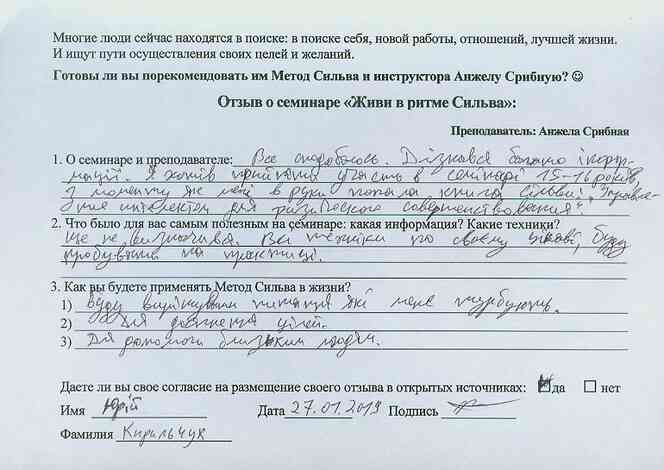 Многие люди сейчас находятся в поиске: в поиске себя, новой работы, отношений, лучшей жизни.
И ищут пути осуществления своих целей и желаний.
Готовы ли вы порекомендовать им Метод Сильва и инструктора Анжелу Срибную? ☺
Отзыв о семинаре «Живи в ритме Сильва»:
Преподаватель: Анжела Срибная
1. О семинаре и преподавателе: Все сподобалось. Дізнався багато інфор-
мації. Я хотів прийняти участь в семінарі 15-16 років,
з моменту як мені в руки попала книга Сільви „Управле-
ние интелектом для физического совершенствования".
2. Что было для вас самым полезным на семинаре: какая информация? Какие техники?
Ще не визначився. Всі техніки по своєму цікаві, буду
пробувати на практиці.
3. Как вы будете применять Метод Сильва в жизни?
1) Буду вирішувати питання які мене турбують.
2) Для досягнення цілей.
3) Для допомоги близьким людям.
Даете ли вы свое согласие на размещение своего отзыва в открытых источниках: да нет
Имя Юрій Дата 27.01.2019 Подпись
Фамилия Кирильчук